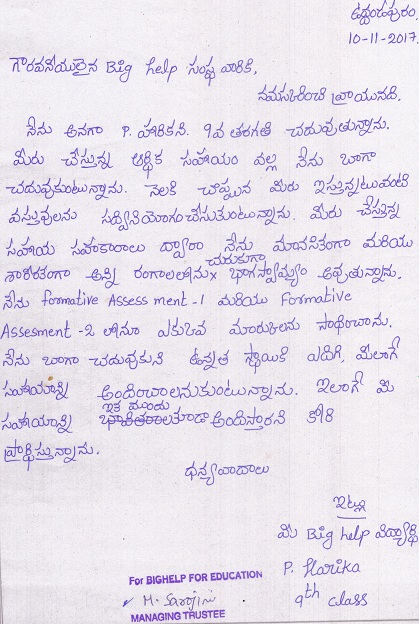 ఉద్దండపురం,
10-11-2017.
గౌరవనీయులైన Big help సంస్థ వారికి,
నమస్కరించి వ్రాయునది.
నేను అనగా P. హారికని. 9వ తరగతి చదువుతున్నాను.
మీరు చేస్తున్న ఆర్థిక సహాయం వల్ల నేను బాగా
చదువుకుంటున్నాను. నెలకి చొప్పున మీరు ఇస్తున్నటువంటి
వస్తువులను సద్వినియోగంచేసుకుంటున్నాను. మీరు చేస్తున్న
సహాయ సహకారాలు ద్వారా నేను మానసికంగా మరియు
శారీరకంగా అన్ని రంగాలలోను చురుకుగా భాగస్వామ్యం అవుతున్నాను.
నేను formative Assess ment -1 మరియు Formative
Assesment -2 లోనూ ఎకువ మారుకులను సాధించాను.
నేను బాగా చదువుకుని ఉన్నత స్థాయికి ఎదిగి, మీలాగే
సహాయాన్ని అందించాలనుకుంటున్నాను. ఇలాగే మీ
సహాయాన్ని ఇక ముందు కూడా అందిస్తారని కోరి
ప్రార్థిస్తున్నాను.
ధన్యవాదాలు
ఇట్లు
మీ Big help విద్యార్థి
P. Harika
9th class
For BIGHELP FOR EDUCATION
M. Sarojini
MANAGING TRUSTEE